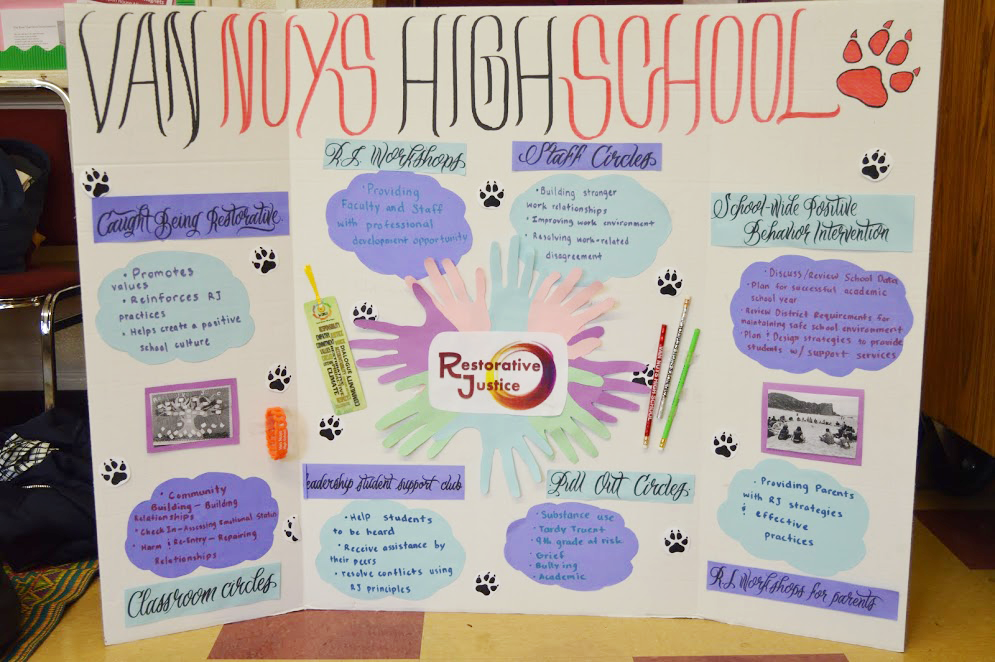 VAN NUYS HIGH SCHOOL
Caught Being Restorative
• Promotes
values
• Reinforces RJ
practices
• Helps create a positive
school culture
• Community
Building - Building
Relationships
• Check In - Assessing Emotional Status
• Harm & Re-Entry - Repairing
Relationships
Classroom circles
R.J. Workshops
• Providing
Faculty and Staff
with professional
development opportunity
Staff Circles
• Building stronger
work relationships
• Improving work environment
• Resolving work-related
disagreement
RESPONSIBILITY
EMPATHY
DIALOGUE
COMMUNITY
CLIMATE
Restorative
Justice
Leadership student support club
• Help students
to be heard
• Receive assistance by
their peers
• resolve conflicts using
RJ principles
Pull Out Circles
• Substance use
• Tardy Truent
• 9th grade at risk
• Grief
• Bullying
• Academic
School-Wide Positive
Behavior Intervention
• Discuss/Review School Data
• Plan for successful academic
school year
• Review District Requirements for
maintaining safe school environment
• Plan + Design strategies to provide
students w/ support services
• Providing Parents
with RJ strategies
& effective
practices
R.J. Workshops for parents